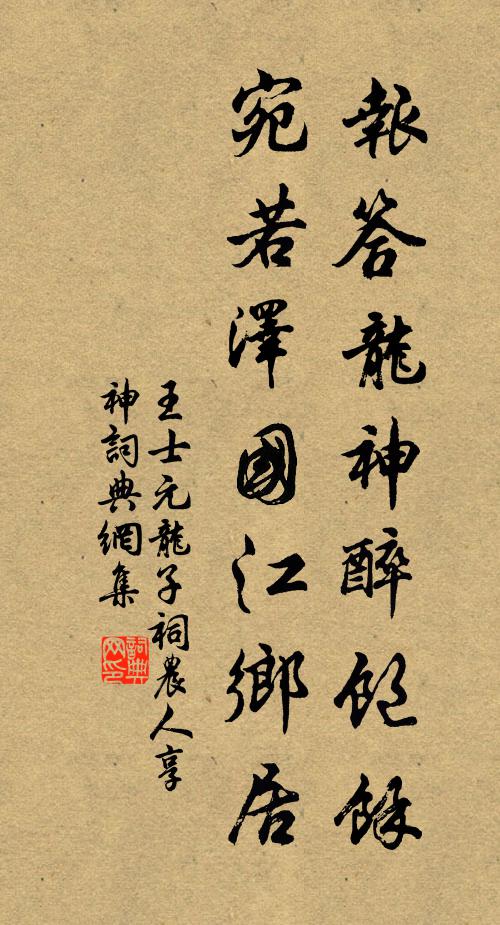 報答龍神醉飽餘
宛若澤國江鄉居
王士元龍子祠農人享
神詞典網集
詞典
网印